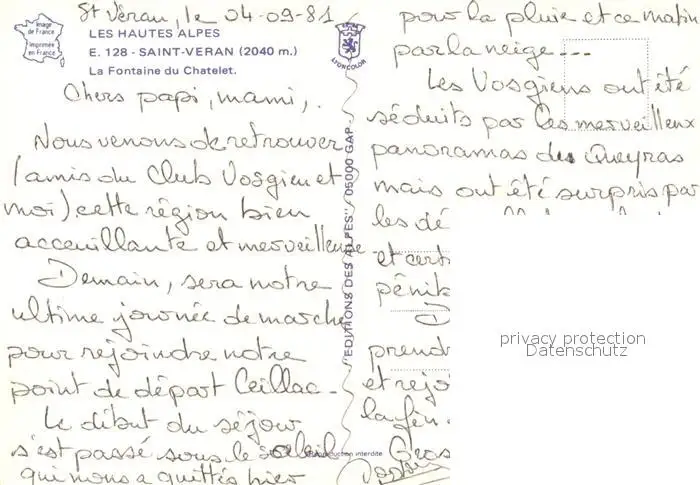 St Véran, le 04-09-81
Image de France
Imprimée en France
LES HAUTES ALPES
E. 128 - SAINT-VERAN (2040 m.)
La Fontaine du Chatelet.
LYONCOLOR
Chers papi, mami,.
Nous venons de retrouver
(amis du Club Vosgien et
moi) cette région bien
acceuillante et merveilleuse
Demain, sera notre
ultime journée de marche
pour rejoindre notre
point de départ Ceillac-
Le début du séjour
s'est passé sous le soleil
qui nous a quittés hier
"EDITIONS DES ALPES" 05000 GAP
Reproduction interdite
pour la pluie et ce matin
par la neige---
Les Vosgiens ont été
séduits par les merveilleux
panoramas du Queyras
mais ont été surpris par
les dé
et cert
pénib
D
prend
et rejo
la fin.
Gros
privacy protection
Datenschutz